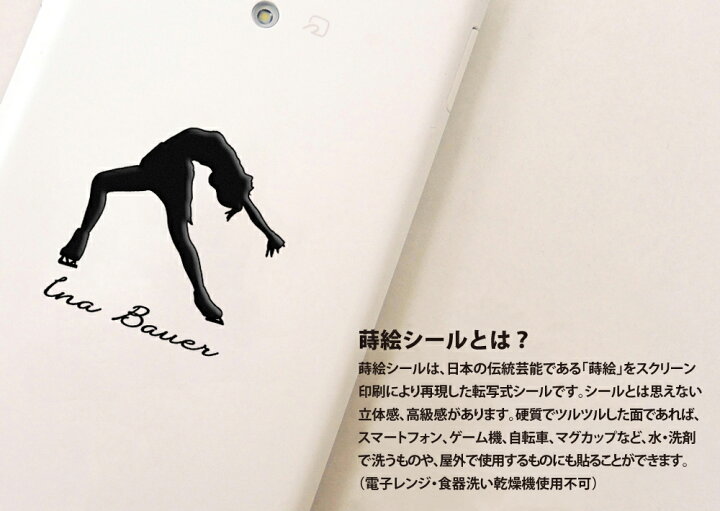 Ina Bauer
蒔絵シールとは？
蒔絵シールは、日本の伝統芸能である「蒔絵」をスクリーン
印刷により再現した転写式シールです。シールとは思えない
立体感、高級感があります。硬質でツルツルした面であれば、
スマートフォン、ゲーム機、自転車、マグカップなど、水・洗剤
で洗うものや、屋外で使用するものにも貼ることができます。
（電子レンジ・食器洗い乾燥機使用不可）